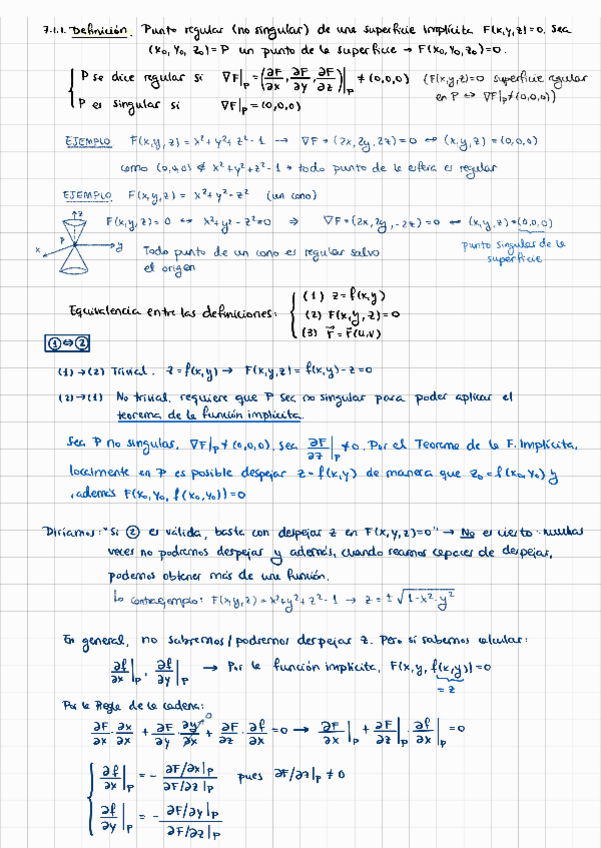 7.1.1. Definición. Punto regular (no singular) de una superficie implícita F(x,y,z)=0. Sea
(x₀, y₀, z₀) = P un punto de la superficie → F(x₀, y₀, z₀)=0.
P se dice regular si ∇F|_P = (∂F/∂x, ∂F/∂y, ∂F/∂z)|_P ≠ (0,0,0) (F(x,y,z)=0 superficie regular
en P ⇔ ∇F|_P ≠ (0,0,0))
P es singular si ∇F|_P = (0,0,0)
EJEMPLO F(x,y,z) = x²+y²+z²-1 → ∇F = (2x,2y,2z)=0 ⇔ (x,y,z) = (0,0,0)
como (0,0,0) ∉ x²+y²+z²-1 → todo punto de la esfera es regular
EJEMPLO F(x,y,z) = x²+y²-z² (un cono)
F(x,y,z)=0 ⇔ x²+y²-z²=0 ⇒ ∇F=(2x,2y,-2z)=0 ⇔ (x,y,z)=(0,0,0)
z
P
x
y
Todo punto de un cono es regular salvo
el origen
punto singular de la
superficie
Equivalencia entre las definiciones:
(1) z=f(x,y)
(2) F(x,y,z)=0
(3) r⃗=r⃗(u,v)
①⇔②
(1)→(2) Trivial. z=f(x,y) → F(x,y,z)=f(x,y)-z=0
(2)→(1) No trivial, requiere que P sea no singular para poder aplicar el
teorema de la función implícita.
Sea P no singular, ∇F|_P ≠ (0,0,0). Sea ∂F/∂z|_P ≠0. Por el Teorema de la F. Implícita,
localmente en P es posible despejar z=f(x,y) de manera que z₀=f(x₀,y₀) y
, además F(x₀,y₀, f(x₀,y₀))=0
Diríamos: "Si ② es válida, basta con despejar z en F(x,y,z)=0" → No es cierto: muchas
veces no podremos despejar y además, cuando seamos capaces de despejar,
podemos obtener más de una función.
↳ contraejemplo: F(x,y,z)=x²+y²+z²-1 → z=±√(1-x²-y²)
En general, no sabremos/podremos despejar z. Pero sí sabemos calcular:
∂f/∂x|_P, ∂f/∂y|_P → Por la función implícita, F(x,y,f(x,y))=0
=z
Por la Regla de la cadena:
∂F/∂x · ∂x/∂x + ∂F/∂y · ∂y/∂x + ∂F/∂z · ∂f/∂x = 0 → ∂F/∂x|_P + ∂F/∂z|_P · ∂f/∂x|_P = 0
0
∂f/∂x|_P = - ∂F/∂x|_P / ∂F/∂z|_P pues ∂F/∂z|_P ≠ 0
∂f/∂y|_P = - ∂F/∂y|_P / ∂F/∂z|_P